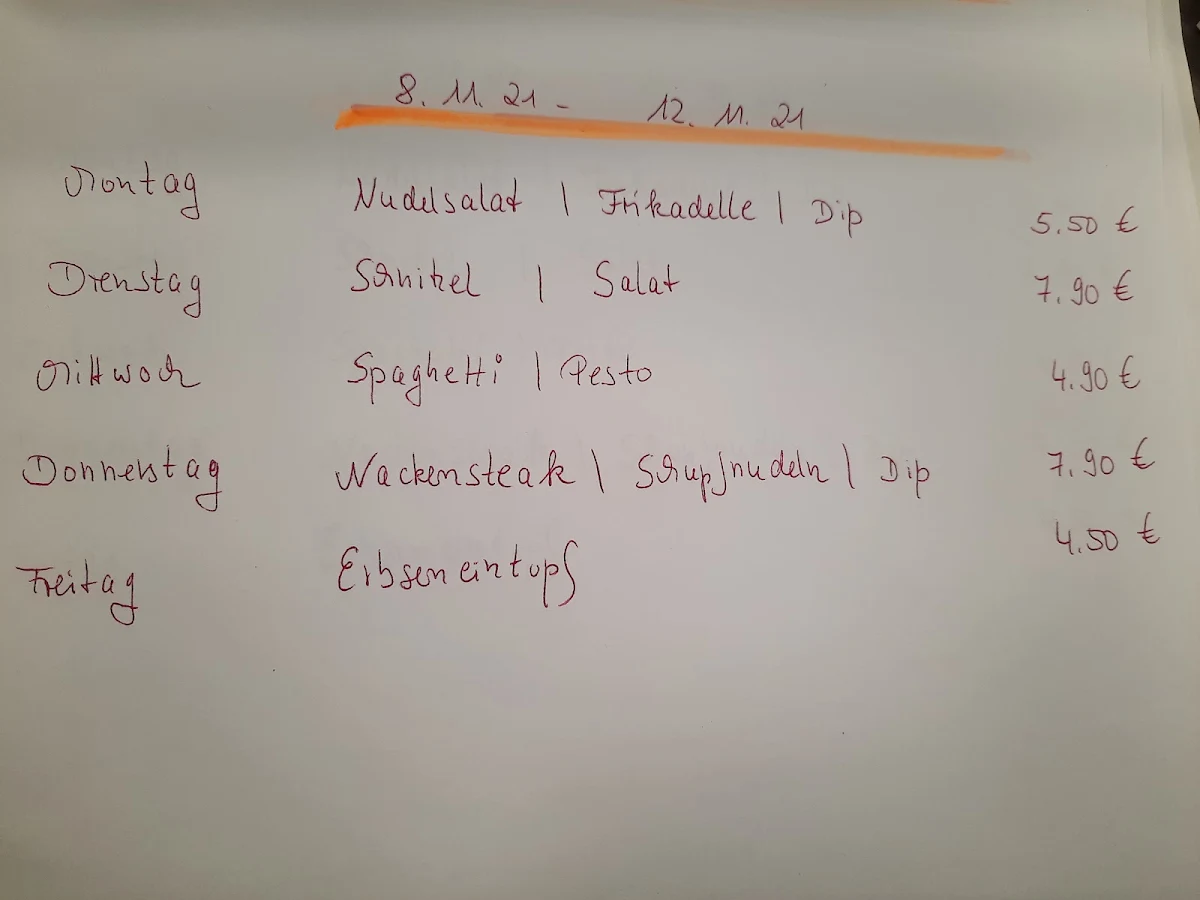 8. 11. 21 - 12. 11. 21
Montag Nudelsalat | Frikadelle | Dip 5.50 €
Dienstag Schnitzel | Salat 7.90 €
Mittwoch Spaghetti | Pesto 4.90 €
Donnerstag Nackensteak | Schupfnudeln | Dip 7.90 €
Freitag Erbseneintopf 4.50 €